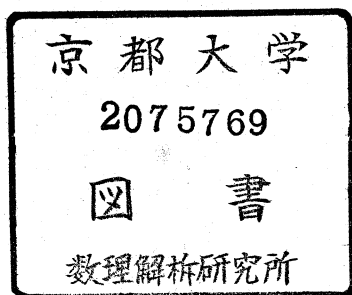 京都大学
2075769
図書
数理解析研究所